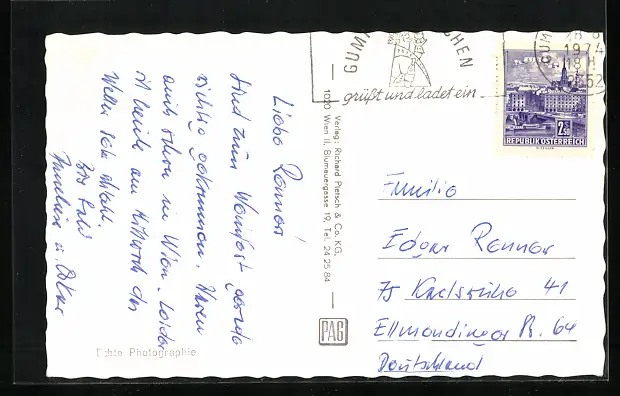 Liebe Renner!
Sind zum Weinfest gerade
richtig gekommen. Waren
auch schon in Wien. Leider
ist heute am Mittwoch das
Wetter sehr
Bis bald
u. Oskar
Echte Photographie
Verlag: Richard Pietsch & Co. KG.
1020 Wien II, Blumauergasse 19, Tel. 24 25 84
PAG
GUM CHEN
grüßt und ladet ein
GUM
1974
18 H
352
2.50
REPUBLIK ÖSTERREICH
Familie
Edgar Renner
75 Karlsruhe 41
Ellmendinger 64
Deutschland